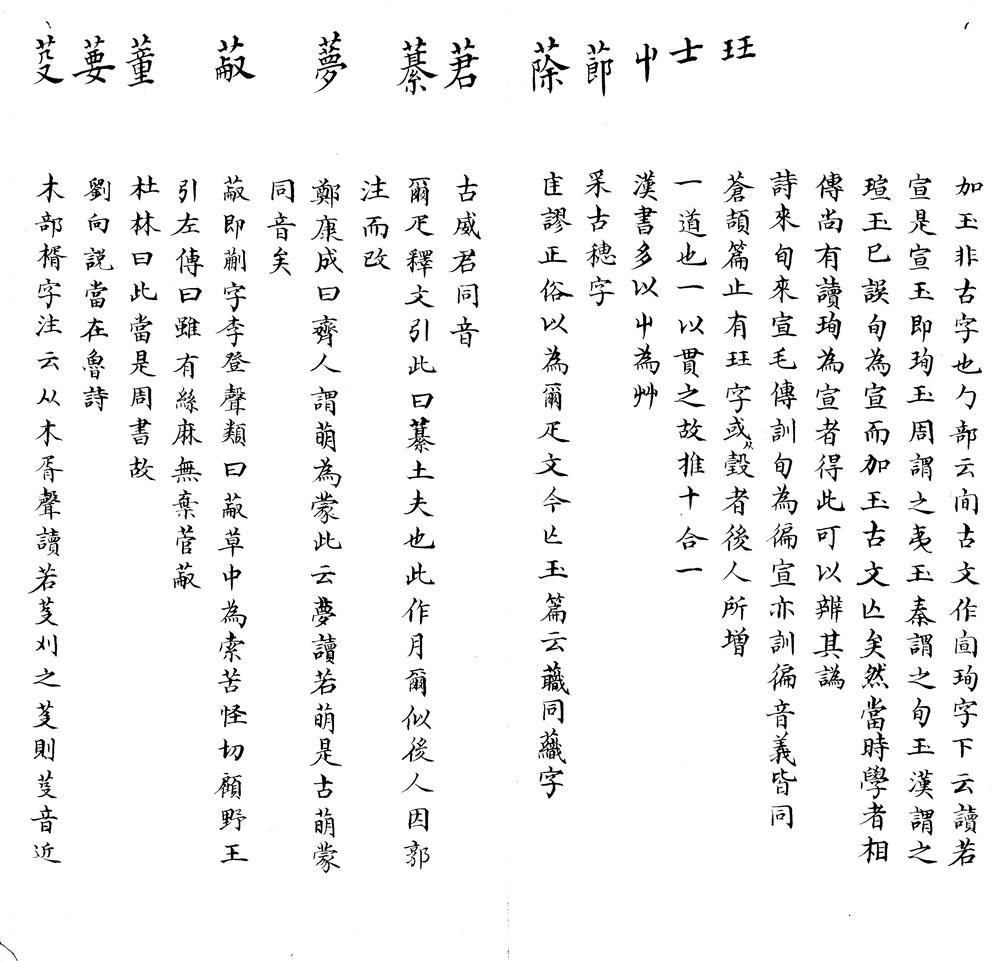 加玉非古字也勹部云㝁古文作㝁珣字下云讀若
宣是宣玉即珣玉周謂之夷玉秦謂之旬玉漢謂之
瑄玉已誤旬為宣而加玉古文亾矣然當時學者相
傳尚有讀珣為宣者得此可以辨其譌
詩來旬來宣毛傳訓旬為徧宣亦訓徧音義皆同
玨 蒼頡篇止有玨字或从㲄者後人所增
士 一道也一以貫之故推十合一
屮 漢書多以屮為艸
莭 采古穗字
蒢 匡謬正俗以為爾疋文今亾玉篇云蘵同蘵字
莙 古威君同音
藄 爾疋釋文引此曰藄土夫也此作月爾似後人因郭
注而改
夢 鄭康成曰齊人謂萌為蒙此云夢讀若萌是古萌蒙
同音矣
蔽 蔽即蒯字李登聲類曰蔽草中為索苦怪切顧野王
引左傳曰雖有絲麻無棄菅蔽
董 杜林曰此當是周書故
葽 劉向說當在魯詩
芟 木部楈字注云从木胥聲讀若芟刈之芟則芟音近